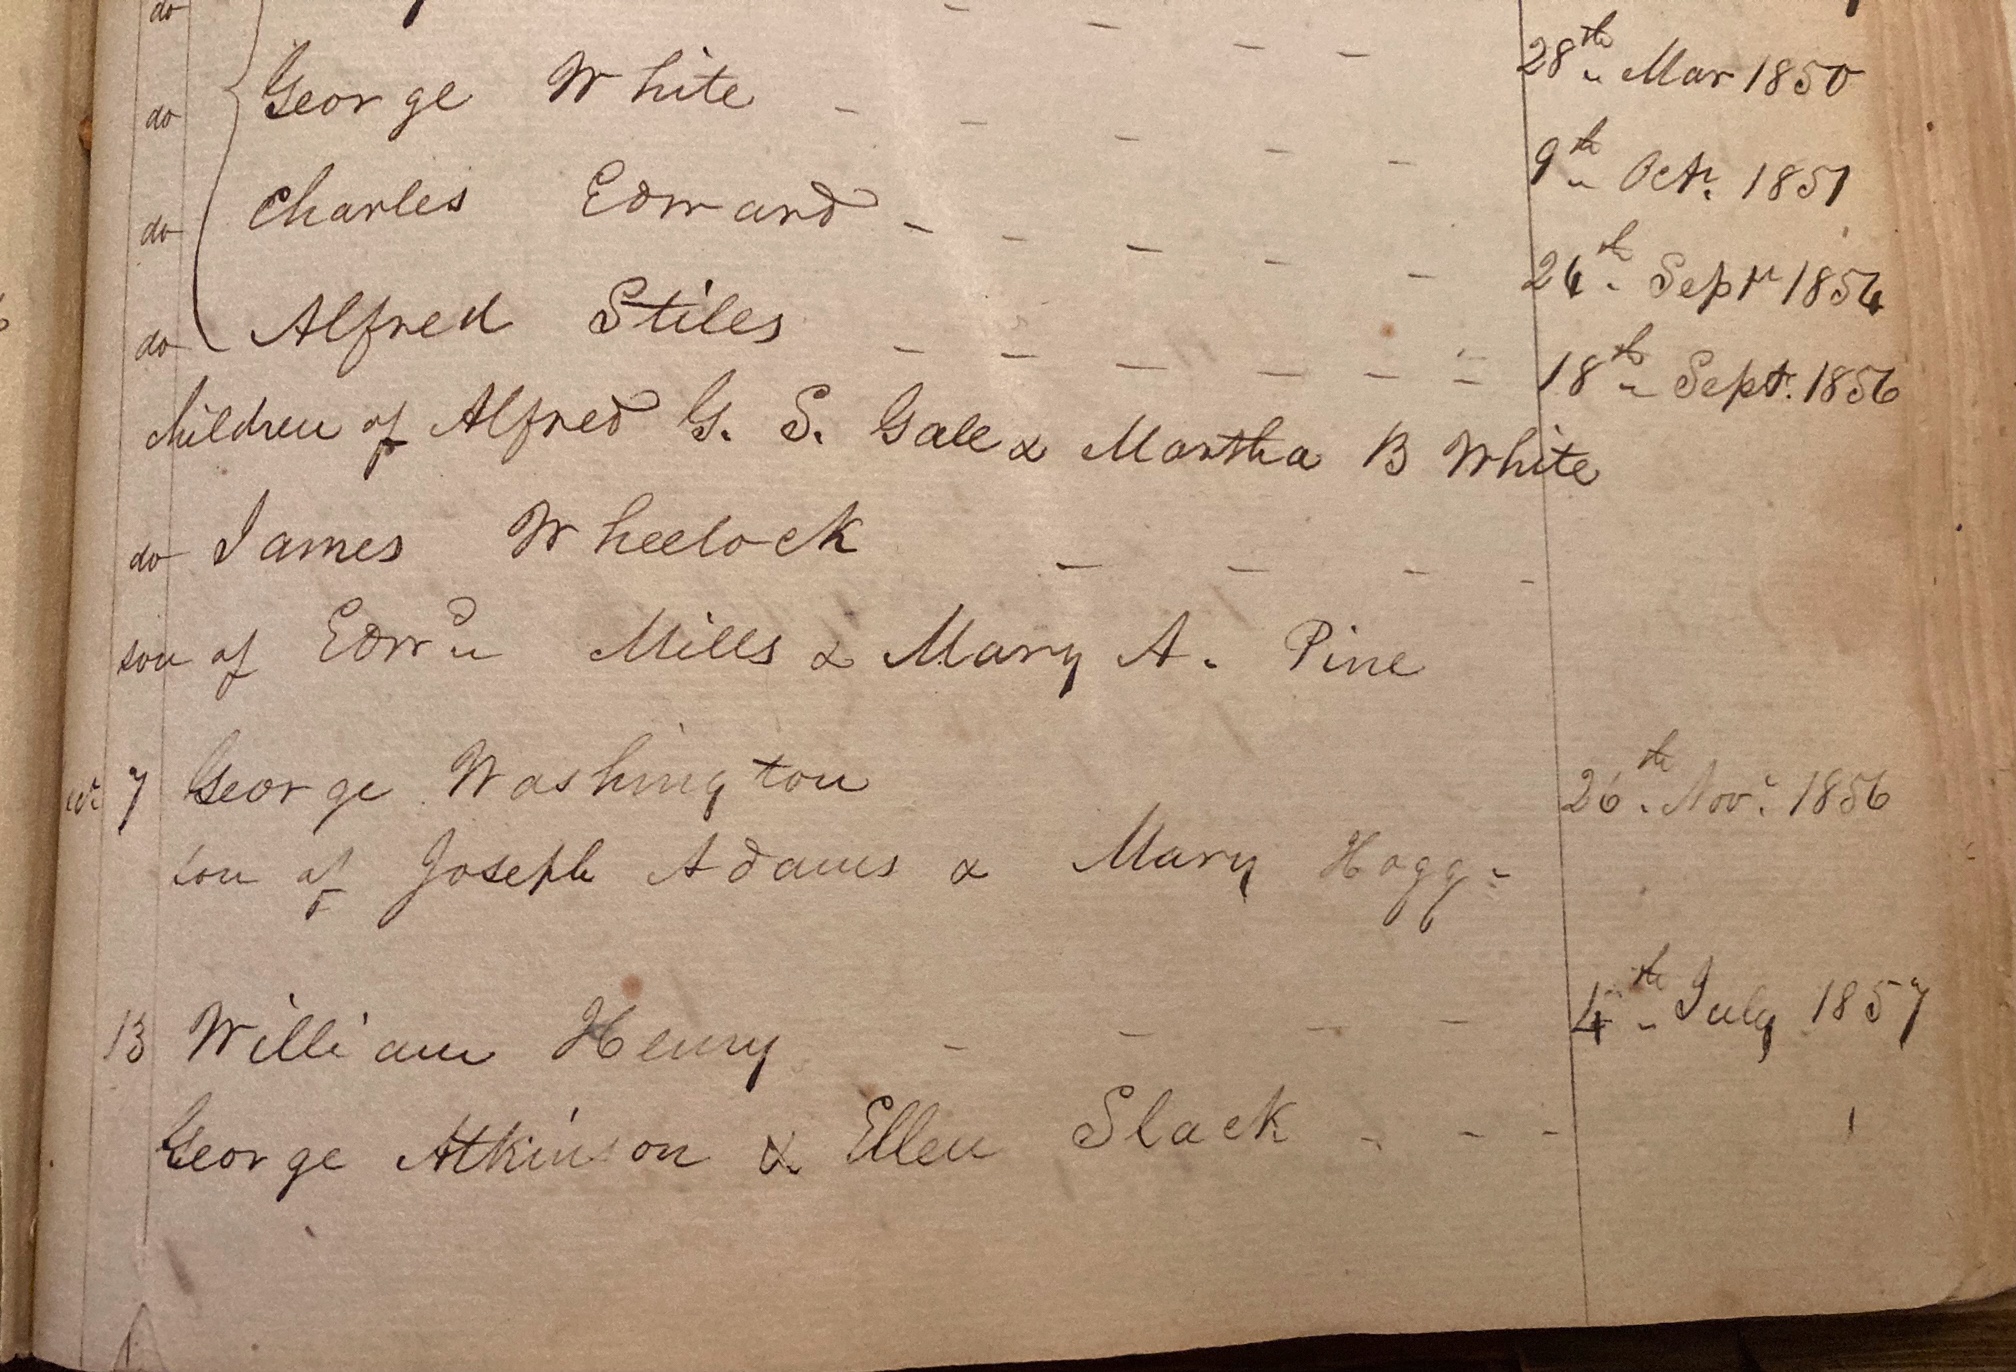 do
do George White - - - - - 28th Mar 1850
do Charles Edward - - - - - 9th Octr. 1851
do Alfred Stiles - - - - - - 24th Sepr 1854
18th Sept. 1856
children of Alfred G. S. Gale & Martha B White
do James Wheelock - - - -
son of Edwd Mills & Mary A. Pine
7 George Washington 26th Novr. 1856
son of Joseph Adams & Mary Hogg
13 William Henry - - - - 4th July 1857
George Atkinson & Ellen Slack - - -